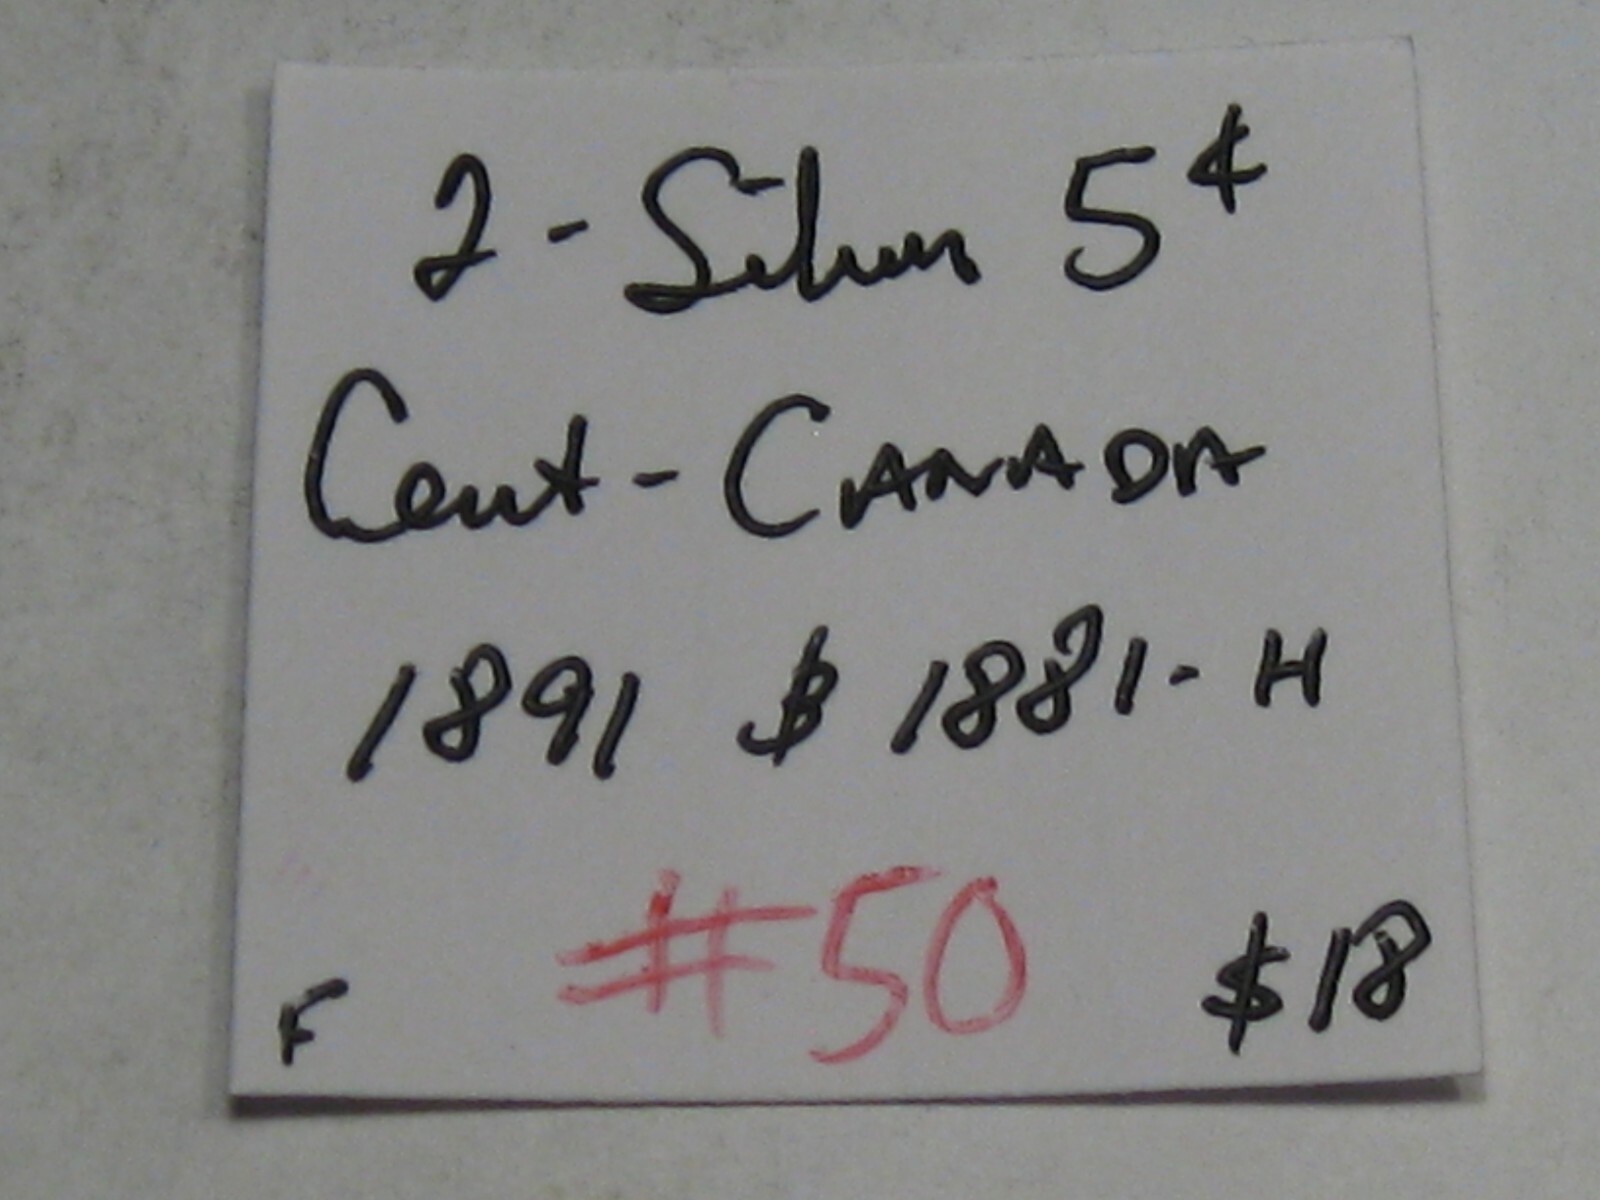 2-Silver 5¢
Cent-CANADA
1891 & 1881-H
#50
F $18